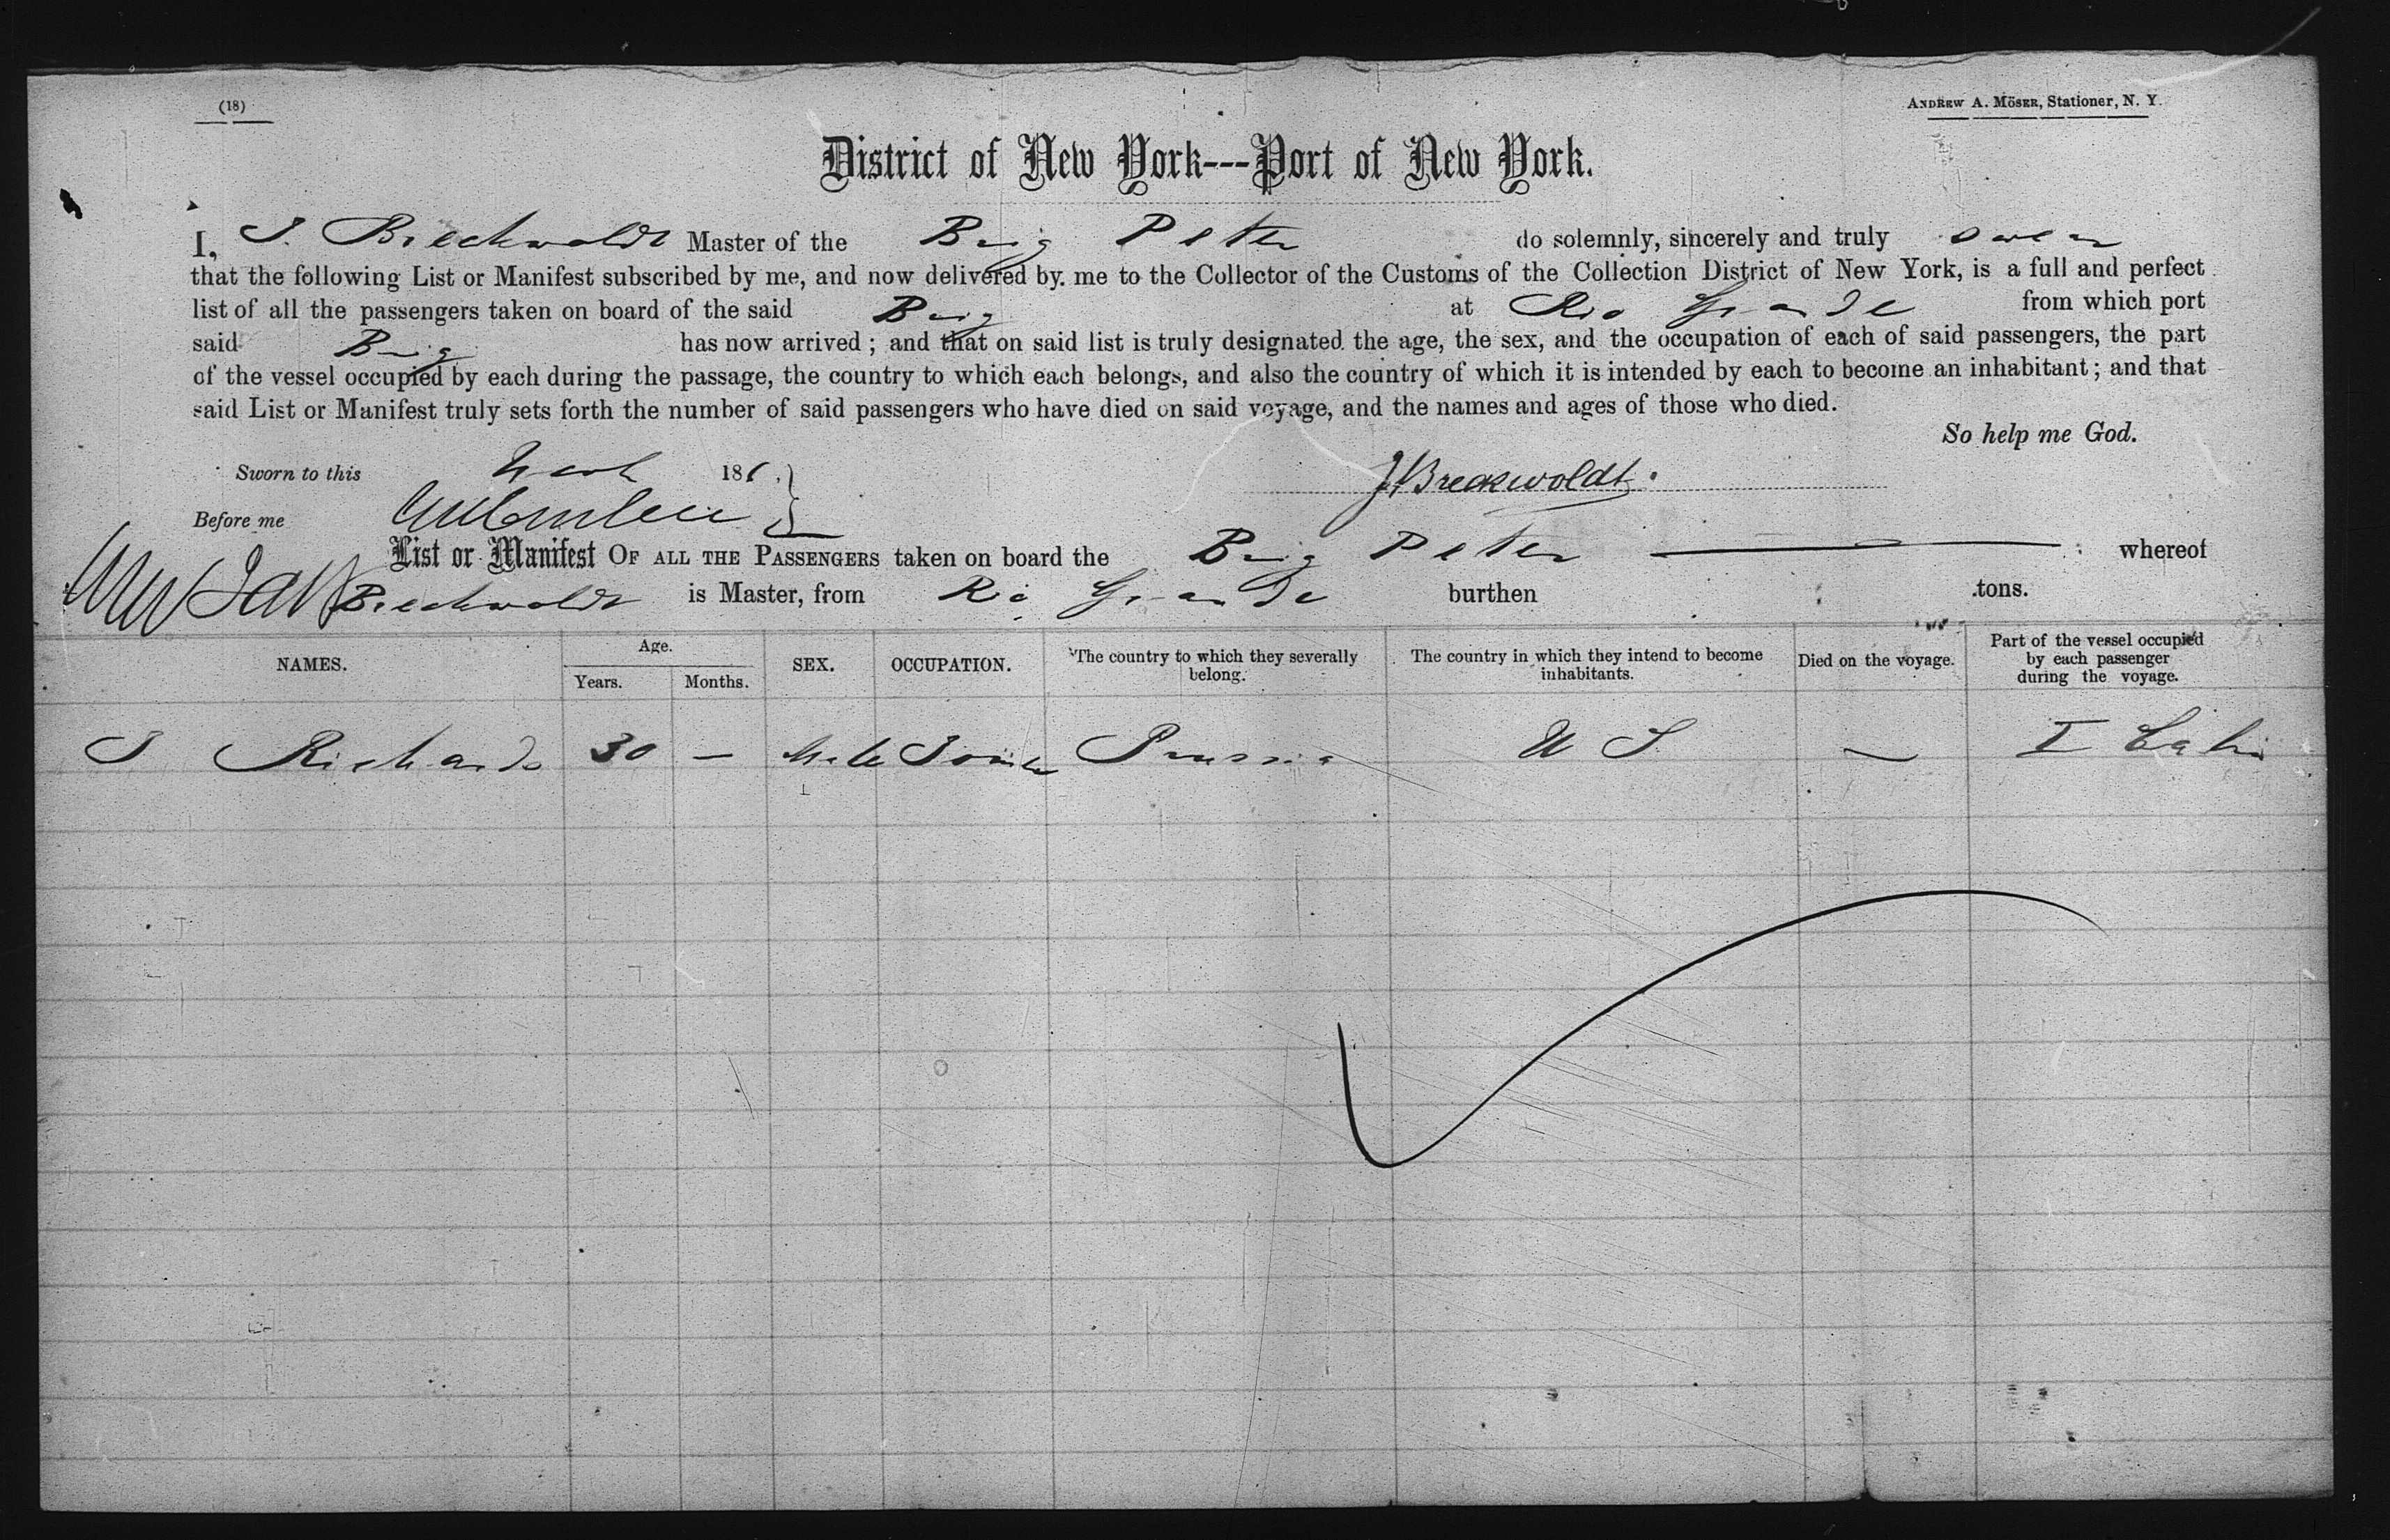 (18)
ANDREW A. MÖSER, Stationer, N. Y.
District of New York---Port of New York.
I, J. Breckwoldt Master of the Brig Peter do solemnly, sincerely and truly swear
that the following List or Manifest subscribed by me, and now delivered by me to the Collector of the Customs of the Collection District of New York, is a full and perfect
list of all the passengers taken on board of the said Brig at Rio Grande from which port
said Brig has now arrived; and that on said list is truly designated the age, the sex, and the occupation of each of said passengers, the part
of the vessel occupied by each during the passage, the country to which each belongs, and also the country of which it is intended by each to become an inhabitant; and that
said List or Manifest truly sets forth the number of said passengers who have died on said voyage, and the names and ages of those who died.
So help me God.
Sworn to this 186
J Breckwoldt.
Before me
List or Manifest OF ALL THE PASSENGERS taken on board the Brig Peter whereof
Breckwoldt is Master, from Rio Grande burthen tons.
NAMES. Age. Years. Months. SEX. OCCUPATION. The country to which they severally belong. The country in which they intend to become inhabitants. Died on the voyage. Part of the vessel occupied by each passenger during the voyage.
J Richards 30 — Male Prussia U S — I Cabin